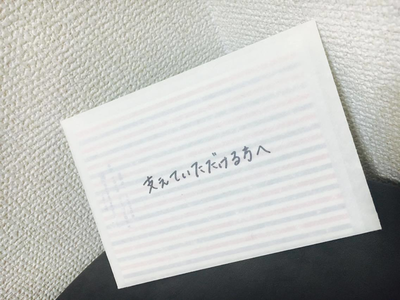 支えていただける方へ